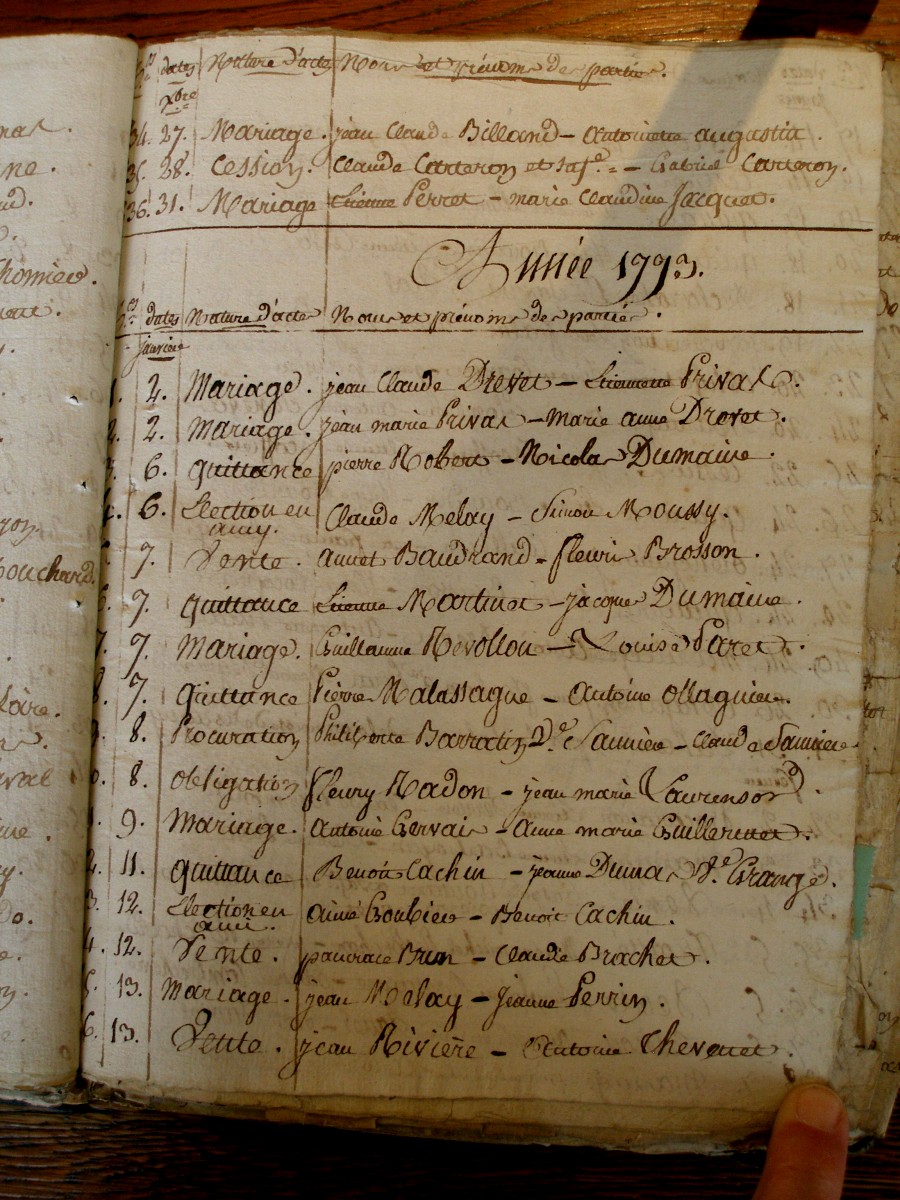 N.os dates Nature d'actes Noms et prénoms des parties.
Xbre
34. 27. Mariage. jean Claude Billand - antoinette augustin.
35. 28. Cession. Claude Carteron et sa fe. = - Gabriel Carteron.
36. 31. Mariage Etienne Perret - marie Claudine Jacquet.
Année 1793.
N.os dates Nature d'actes Noms et prénoms des parties.
janvier
1. 2. Mariage. jean Claude Drevet - Etiennette Privat.
2. 2. Mariage. jean marie Privat - Marie anne Drevet.
6. quittance pierre Robert - Nicolas Dumaine.
6. Election en amy. Claude Melay - Simon Moussy.
7. Vente. annet Baudrand - fleuri Brosson.
7. quittance Etienne Martinot - jacques Dumaine.
7. 7. Mariage. Guillaume Revollon - Louise Paret.
8. 7. quittance Pierre Malassagne - antoine Ollagnier.
9. 8. Procuration Philiberte Barratin Ve Saunier - Claude Saunier
0. 8. obligation fleury Nadon - jean marie Laurenson.
9. Mariage. antoine Gervais - anne marie Guillermet.
2. 11. quittance Benoit Cachin - jeanne Dumas Ve Grange.
3. 12. Election en ami. aimé Goubier - Benoit Cachin.
4. 12. Vente. pancrace Brun - Claude Brachet.
5. 13. Mariage. jean Melay - Jeanne Perrin.
6. 13. Vente. jean Rivière - antoine Thevenet.